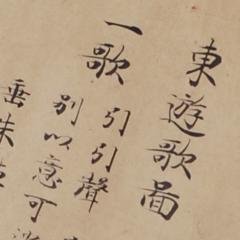 東遊歌圖
一歌 引引聲
別以意可
垂